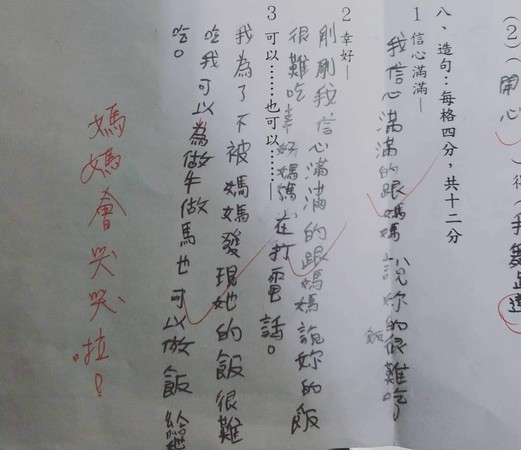 (2)(開心)
八、造句：每格四分，共十二分
1 信心滿滿—
我信心滿滿的跟媽媽說妳的飯很難吃
2 幸好—
剛剛我信心滿滿的跟媽媽說妳的飯
很難吃幸好媽媽在打電話。
3 可以……也可以………—
我為了不被媽媽發現她的飯很難
吃我可以為做牛做馬也可以做飯給她
吃。
媽媽會哭哭啦！